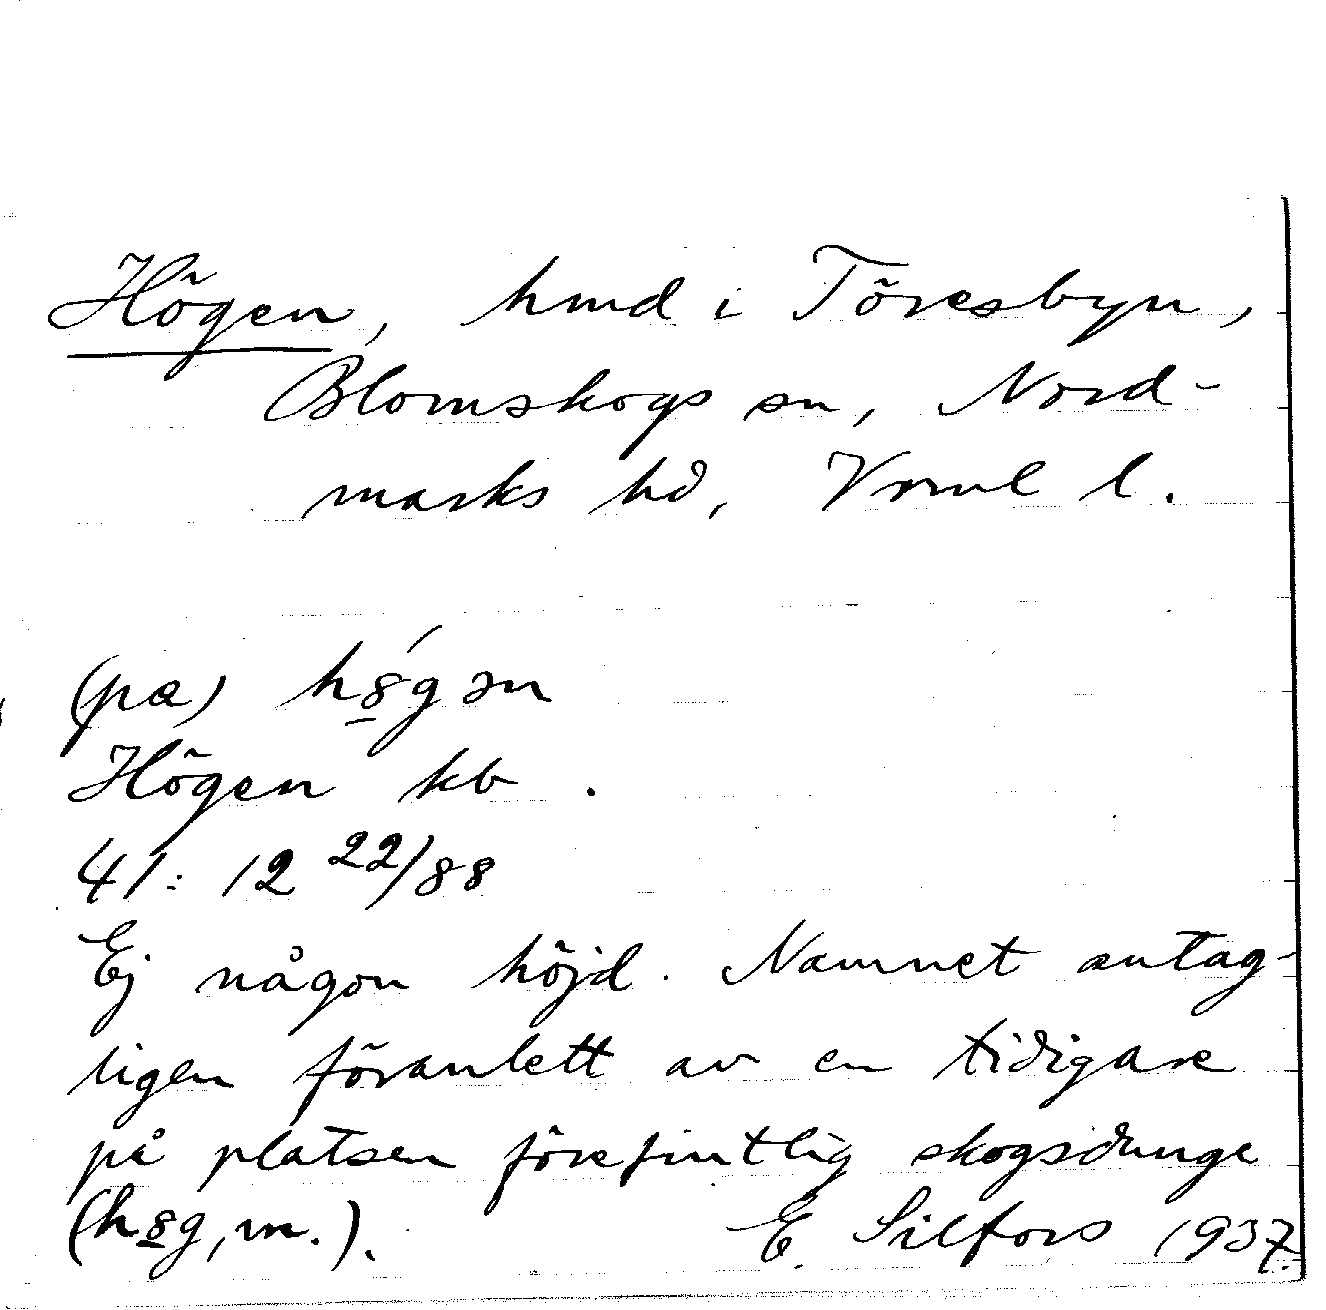 Högen, hmd i Töresbyn,
Blomskogs sn, Nord-
marks hd, Vrml l.
(pα) h8̱́gən
Högen kb.
41: 12 22/88
Ej någon höjd. Namnet antag-
ligen föranlett av en tidigare
på platsen förefintlig skogsdunge
(h8̱g, m.). E. Silfors 1937.